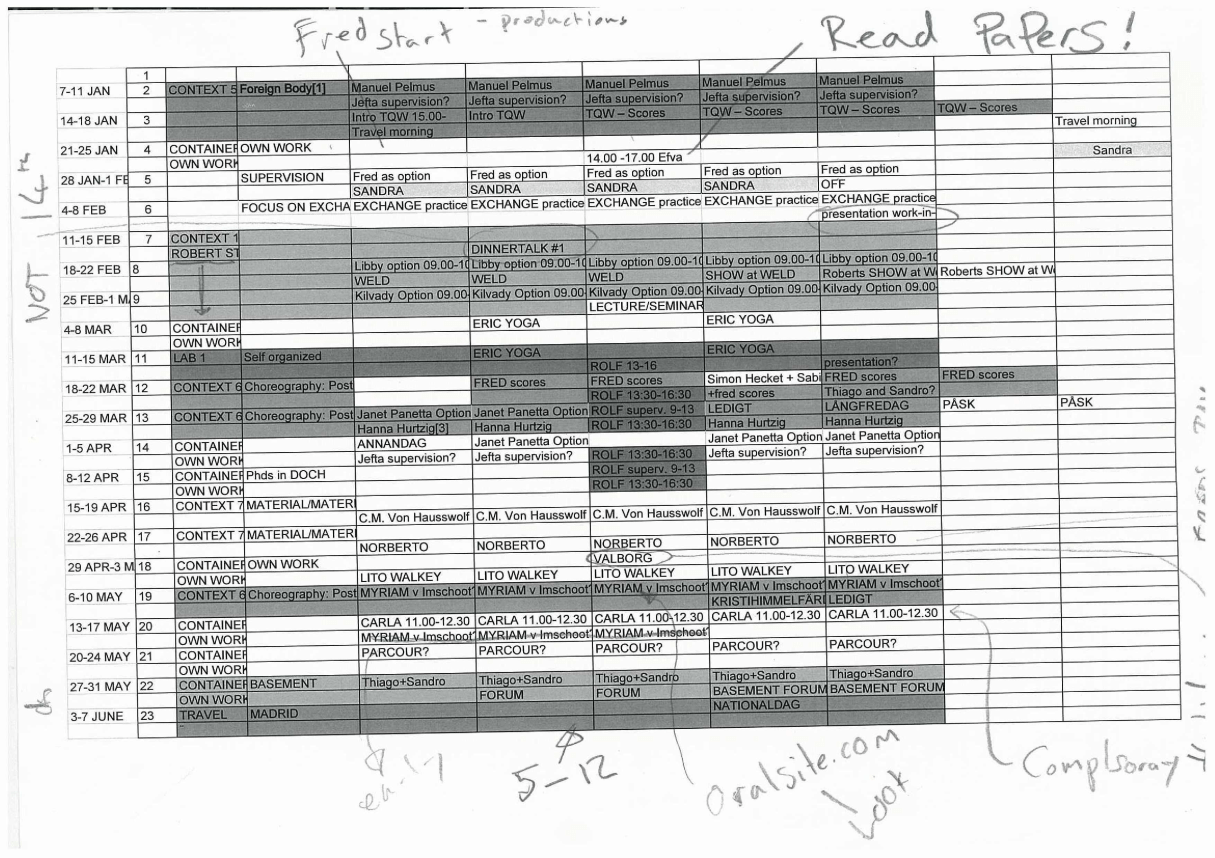 Fred start - productions
Read PaPers!
1
7-11 JAN 2 CONTEXT 5 Foreign Body[1] Manuel Pelmus Manuel Pelmus Manuel Pelmus Manuel Pelmus Manuel Pelmus
Jefta supervision? Jefta supervision? Jefta supervision? Jefta supervision? Jefta supervision?
14-18 JAN 3 Intro TQW 15.00- Intro TQW TQW – Scores TQW – Scores TQW – Scores TQW – Scores
Travel morning Travel morning
21-25 JAN 4 CONTAINER OWN WORK Sandra
OWN WORK 14.00 -17.00 Efva
28 JAN-1 FE 5 SUPERVISION Fred as option Fred as option Fred as option Fred as option Fred as option
SANDRA SANDRA SANDRA SANDRA OFF
4-8 FEB 6 FOCUS ON EXCHA EXCHANGE practice EXCHANGE practice EXCHANGE practice EXCHANGE practice EXCHANGE practice
presentation work-in-
NOT 14th
11-15 FEB 7 CONTEXT 1
ROBERT ST DINNERTALK #1
18-22 FEB 8 Libby option 09.00-10 Libby option 09.00-10 Libby option 09.00-10 Libby option 09.00-10 Libby option 09.00-
WELD WELD WELD SHOW at WELD Roberts SHOW at W Roberts SHOW at W
25 FEB-1 M 9 Kilvady Option 09.00- Kilvady Option 09.00- Kilvady Option 09.00- Kilvady Option 09.00- Kilvady Option 09.00-
LECTURE/SEMINAR
4-8 MAR 10 CONTAINER ERIC YOGA ERIC YOGA
OWN WORK
11-15 MAR 11 LAB 1 Self organized ERIC YOGA ERIC YOGA
ROLF 13-16 presentation?
18-22 MAR 12 CONTEXT 6 Choreography: Post FRED scores FRED scores Simon Hecket + Sabi FRED scores FRED scores
ROLF 13:30-16:30 +fred scores Thiago and Sandro?
25-29 MAR 13 CONTEXT 6 Choreography: Post Janet Panetta Option Janet Panetta Option ROLF superv. 9-13 LEDIGT LÅNGFREDAG PÅSK PÅSK
Hanna Hurtzig[3] Hanna Hurtzig ROLF 13:30-16:30 Hanna Hurtzig Hanna Hurtzig
1-5 APR 14 CONTAINER ANNANDAG Janet Panetta Option Janet Panetta Option Janet Panetta Option
OWN WORK Jefta supervision? Jefta supervision? ROLF 13:30-16:30 Jefta supervision? Jefta supervision?
8-12 APR 15 CONTAINER Phds in DOCH ROLF superv. 9-13
OWN WORK ROLF 13:30-16:30
15-19 APR 16 CONTEXT 7 MATERIAL/MATERI
C.M. Von Hausswolf C.M. Von Hausswolf C.M. Von Hausswolf C.M. Von Hausswolf C.M. Von Hausswolf
22-26 APR 17 CONTEXT 7 MATERIAL/MATERI
NORBERTO NORBERTO NORBERTO NORBERTO NORBERTO
29 APR-3 M 18 CONTAINER OWN WORK VALBORG
OWN WORK LITO WALKEY LITO WALKEY LITO WALKEY LITO WALKEY LITO WALKEY
6-10 MAY 19 CONTEXT 6 Choreography: Post MYRIAM v Imschoot MYRIAM v Imschoot MYRIAM v Imschoot MYRIAM v Imschoot MYRIAM v Imschoot
KRISTIHIMMELFÄR LEDIGT
13-17 MAY 20 CONTAINER CARLA 11.00-12.30 CARLA 11.00-12.30 CARLA 11.00-12.30 CARLA 11.00-12.30 CARLA 11.00-12.30
OWN WORK MYRIAM v Imschoot MYRIAM v Imschoot MYRIAM v Imschoot
20-24 MAY 21 CONTAINER PARCOUR? PARCOUR? PARCOUR? PARCOUR? PARCOUR?
OWN WORK
27-31 MAY 22 CONTAINER BASEMENT Thiago+Sandro Thiago+Sandro Thiago+Sandro Thiago+Sandro Thiago+Sandro
OWN WORK FORUM FORUM BASEMENT FORUM BASEMENT FORUM
3-7 JUNE 23 TRAVEL MADRID NATIONALDAG
5-12
Oralsite.com
Look
Complsoray